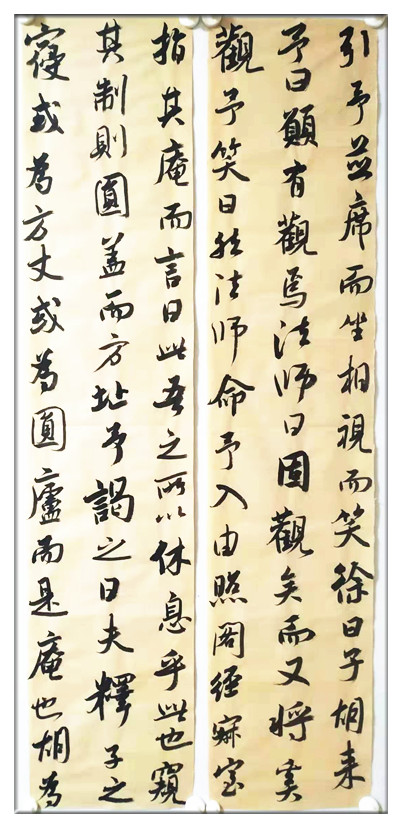 引予並席而坐相視而笑徐曰子胡来
予曰願有觀焉法師曰固觀矣而又將奚
觀予笑曰然法師命予入由照閣經寂室
指其庵而言曰此吾之所以休息乎此也窺
其制則圓盖而方址予謁之曰夫釋子之
寢或為方丈或為圓廬而是庵也胡為